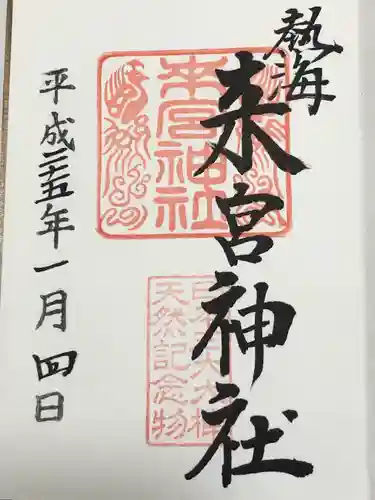 熱海
来宮神社
来宮神社
天然記念物
平成二十五年一月四日